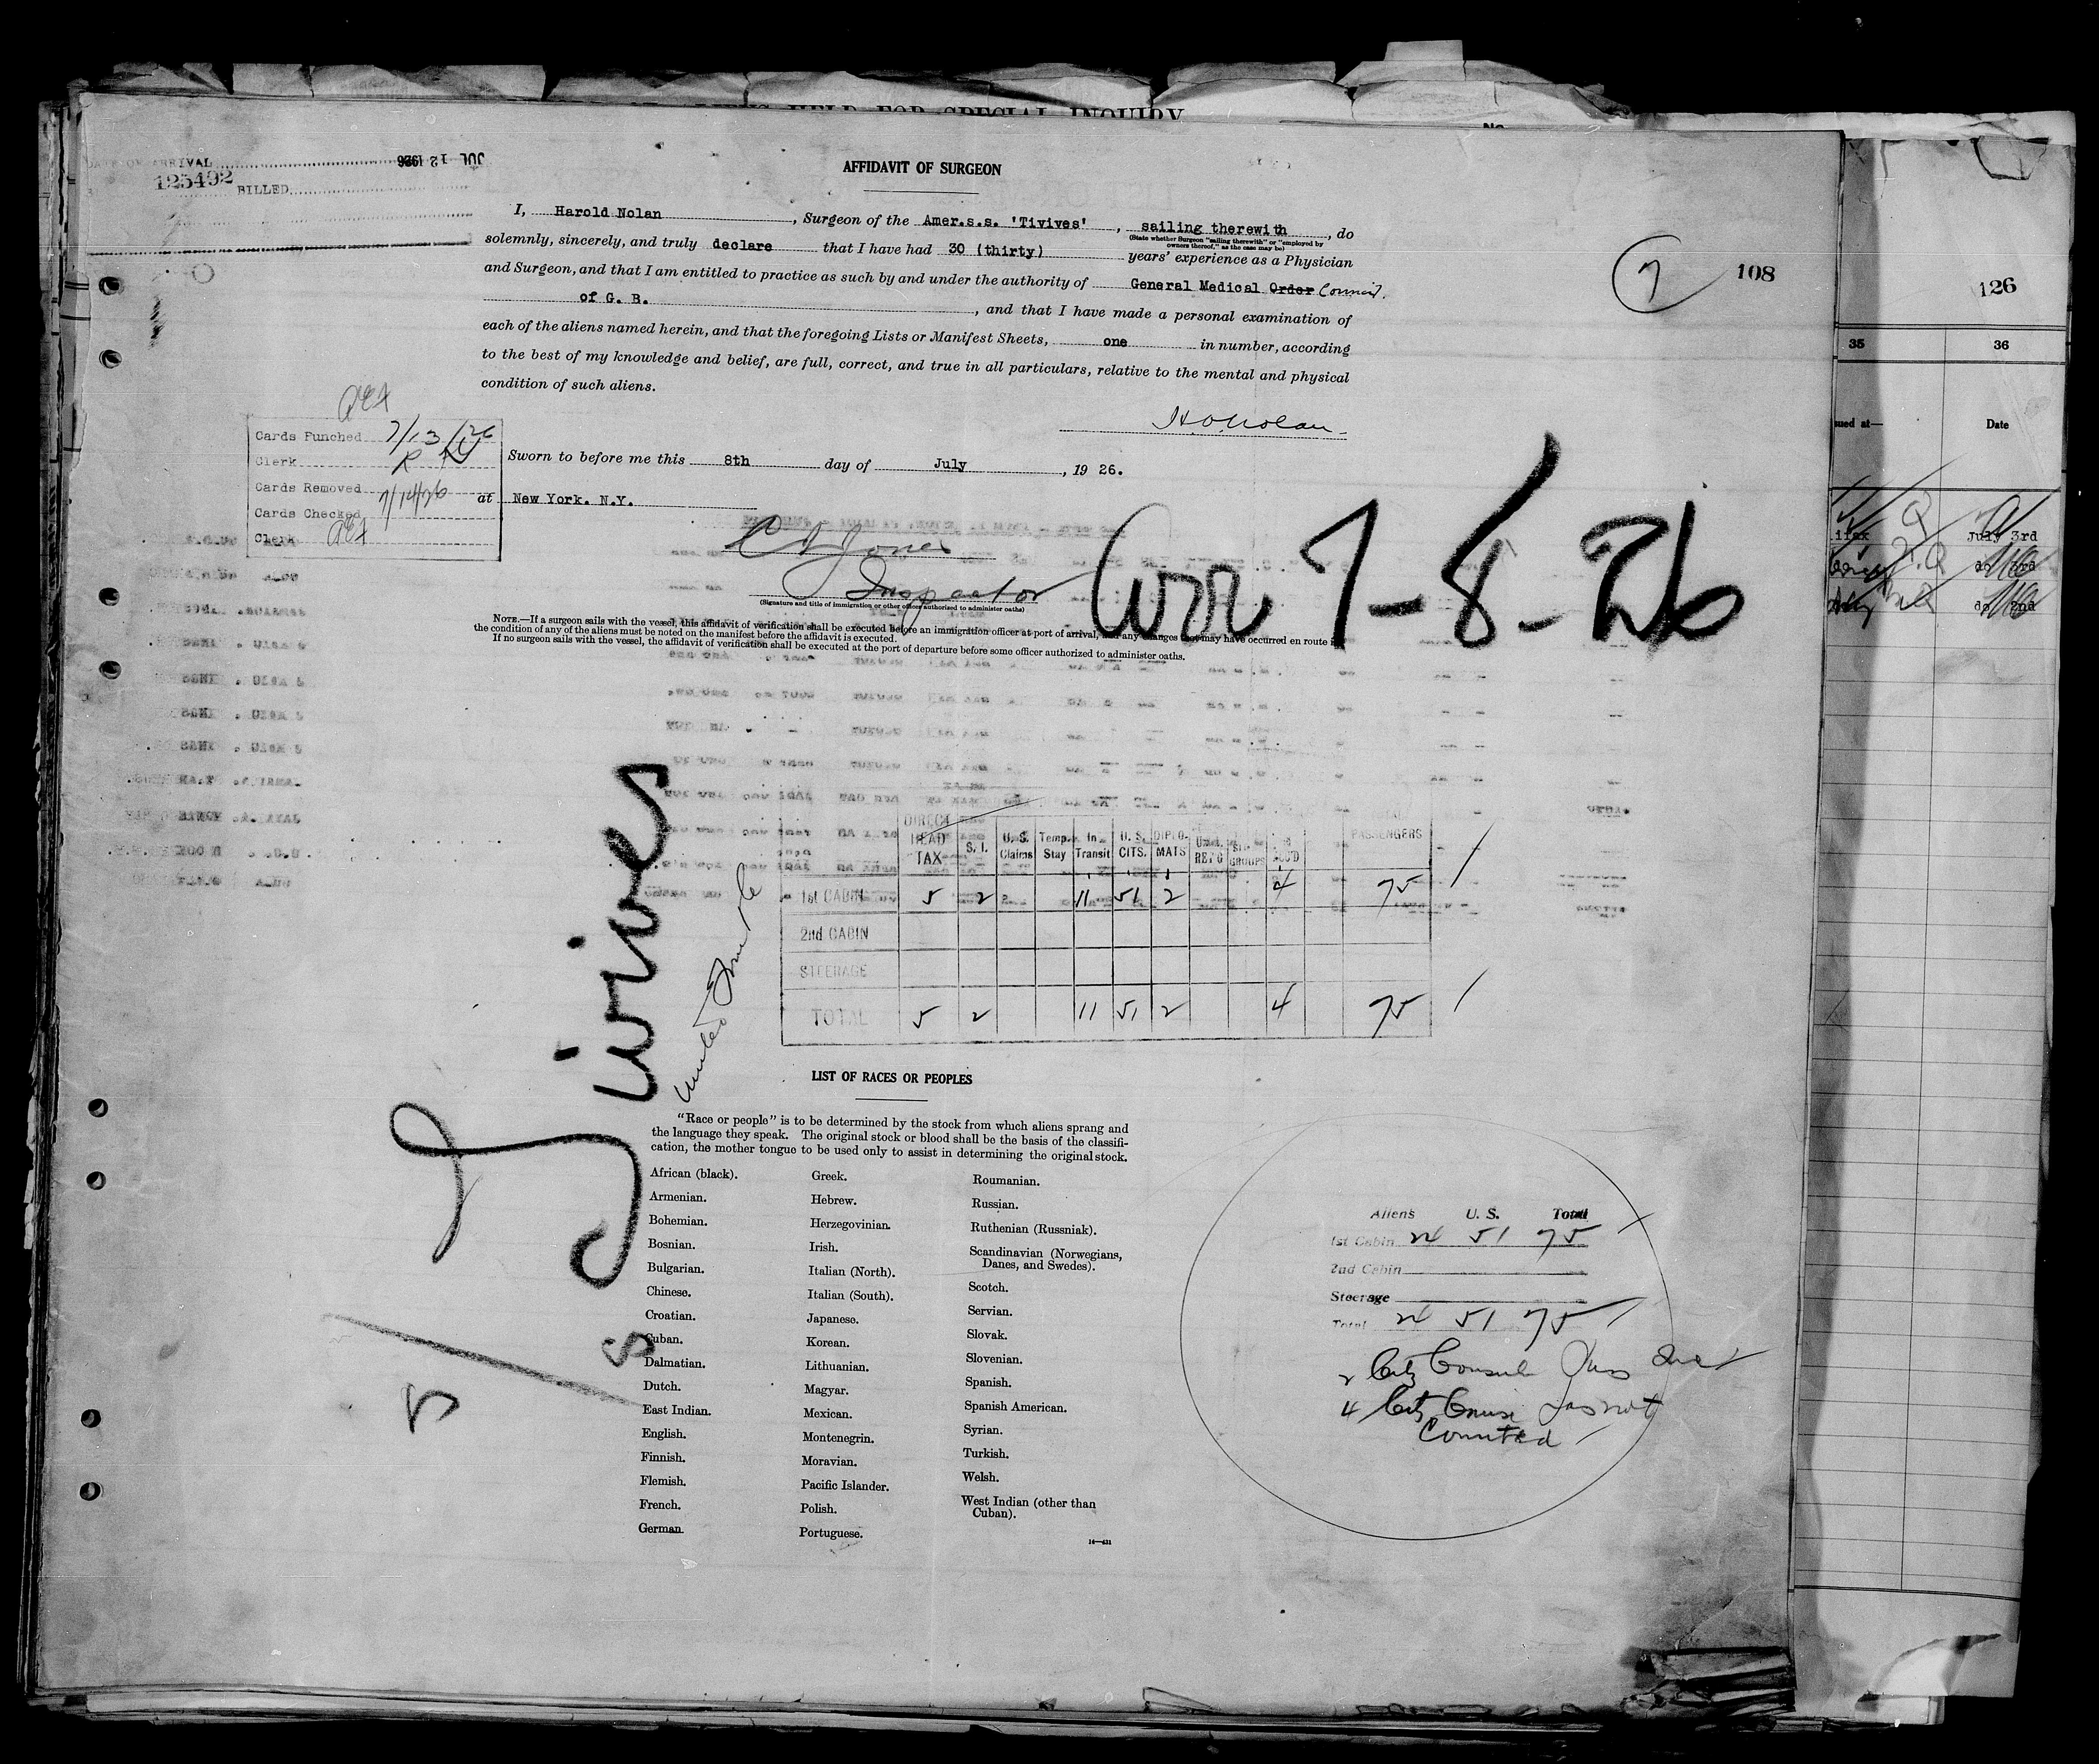 HELD FOR SPECIAL INQUIRY
No
DATE OF ARRIVAL JUL 12 1926
125492 BILLED
AFFIDAVIT OF SURGEON
I, Harold Nolan, Surgeon of the Amer.s.s. 'Tivives', sailing therewith, do
(State whether Surgeon "sailing therewith" or "employed by
owners thereof," as the case may be)
solemnly, sincerely, and truly declare that I have had 30 (thirty) years' experience as a Physician
and Surgeon, and that I am entitled to practice as such by and under the authority of General Medical Order Council.
of G. B., and that I have made a personal examination of
each of the aliens named herein, and that the foregoing Lists or Manifest Sheets, one in number, according
to the best of my knowledge and belief, are full, correct, and true in all particulars, relative to the mental and physical
condition of such aliens.
7 108
126
35 36
sued at— Date
ifax July 3rd
do 3rd
do 2nd
H.O. Nolan
Cards Punched 7/13/26
Clerk
Cards Removed 7/14/26
Cards Checked
Clerk
Sworn to before me this 8th day of July, 19 26.
at New York. N.Y.
Jones
Inspector
(Signature and title of immigration or other officer authorized to administer oaths)
7-8-26
NOTE.—If a surgeon sails with the vessel, this affidavit of verification shall be executed before an immigration officer at port of arrival, and any changes that may have occurred en route in
the condition of any of the aliens must be noted on the manifest before the affidavit is executed.
If no surgeon sails with the vessel, the affidavit of verification shall be executed at the port of departure before some officer authorized to administer oaths.
S/S Tivives
United Fruit Co
DIRECT HEAD TAX S. I. U. S. Claims Temp. Stay In Transit U. S. CITS. DIPLO- MATS GROUPS PASSENGERS
1st CABIN 5 2 11 51 2 4 75
2nd CABIN
STEERAGE
TOTAL 5 2 11 51 2 4 75
LIST OF RACES OR PEOPLES
"Race or people" is to be determined by the stock from which aliens sprang and
the language they speak. The original stock or blood shall be the basis of the classifi-
cation, the mother tongue to be used only to assist in determining the original stock.
African (black).
Armenian.
Bohemian.
Bosnian.
Bulgarian.
Chinese.
Croatian.
Cuban.
Dalmatian.
Dutch.
East Indian.
English.
Finnish.
Flemish.
French.
German.
Greek.
Hebrew.
Herzegovinian.
Irish.
Italian (North).
Italian (South).
Japanese.
Korean.
Lithuanian.
Magyar.
Mexican.
Montenegrin.
Moravian.
Pacific Islander.
Polish.
Portuguese.
Roumanian.
Russian.
Ruthenian (Russniak).
Scandinavian (Norwegians,
Danes, and Swedes).
Scotch.
Servian.
Slovak.
Slovenian.
Spanish.
Spanish American.
Syrian.
Turkish.
Welsh.
West Indian (other than
Cuban).
Aliens U. S. Total
1st Cabin 24 51 75
2nd Cabin
Steerage
Total 24 51 75
2 Citz Consul
4 Citz not
Counted